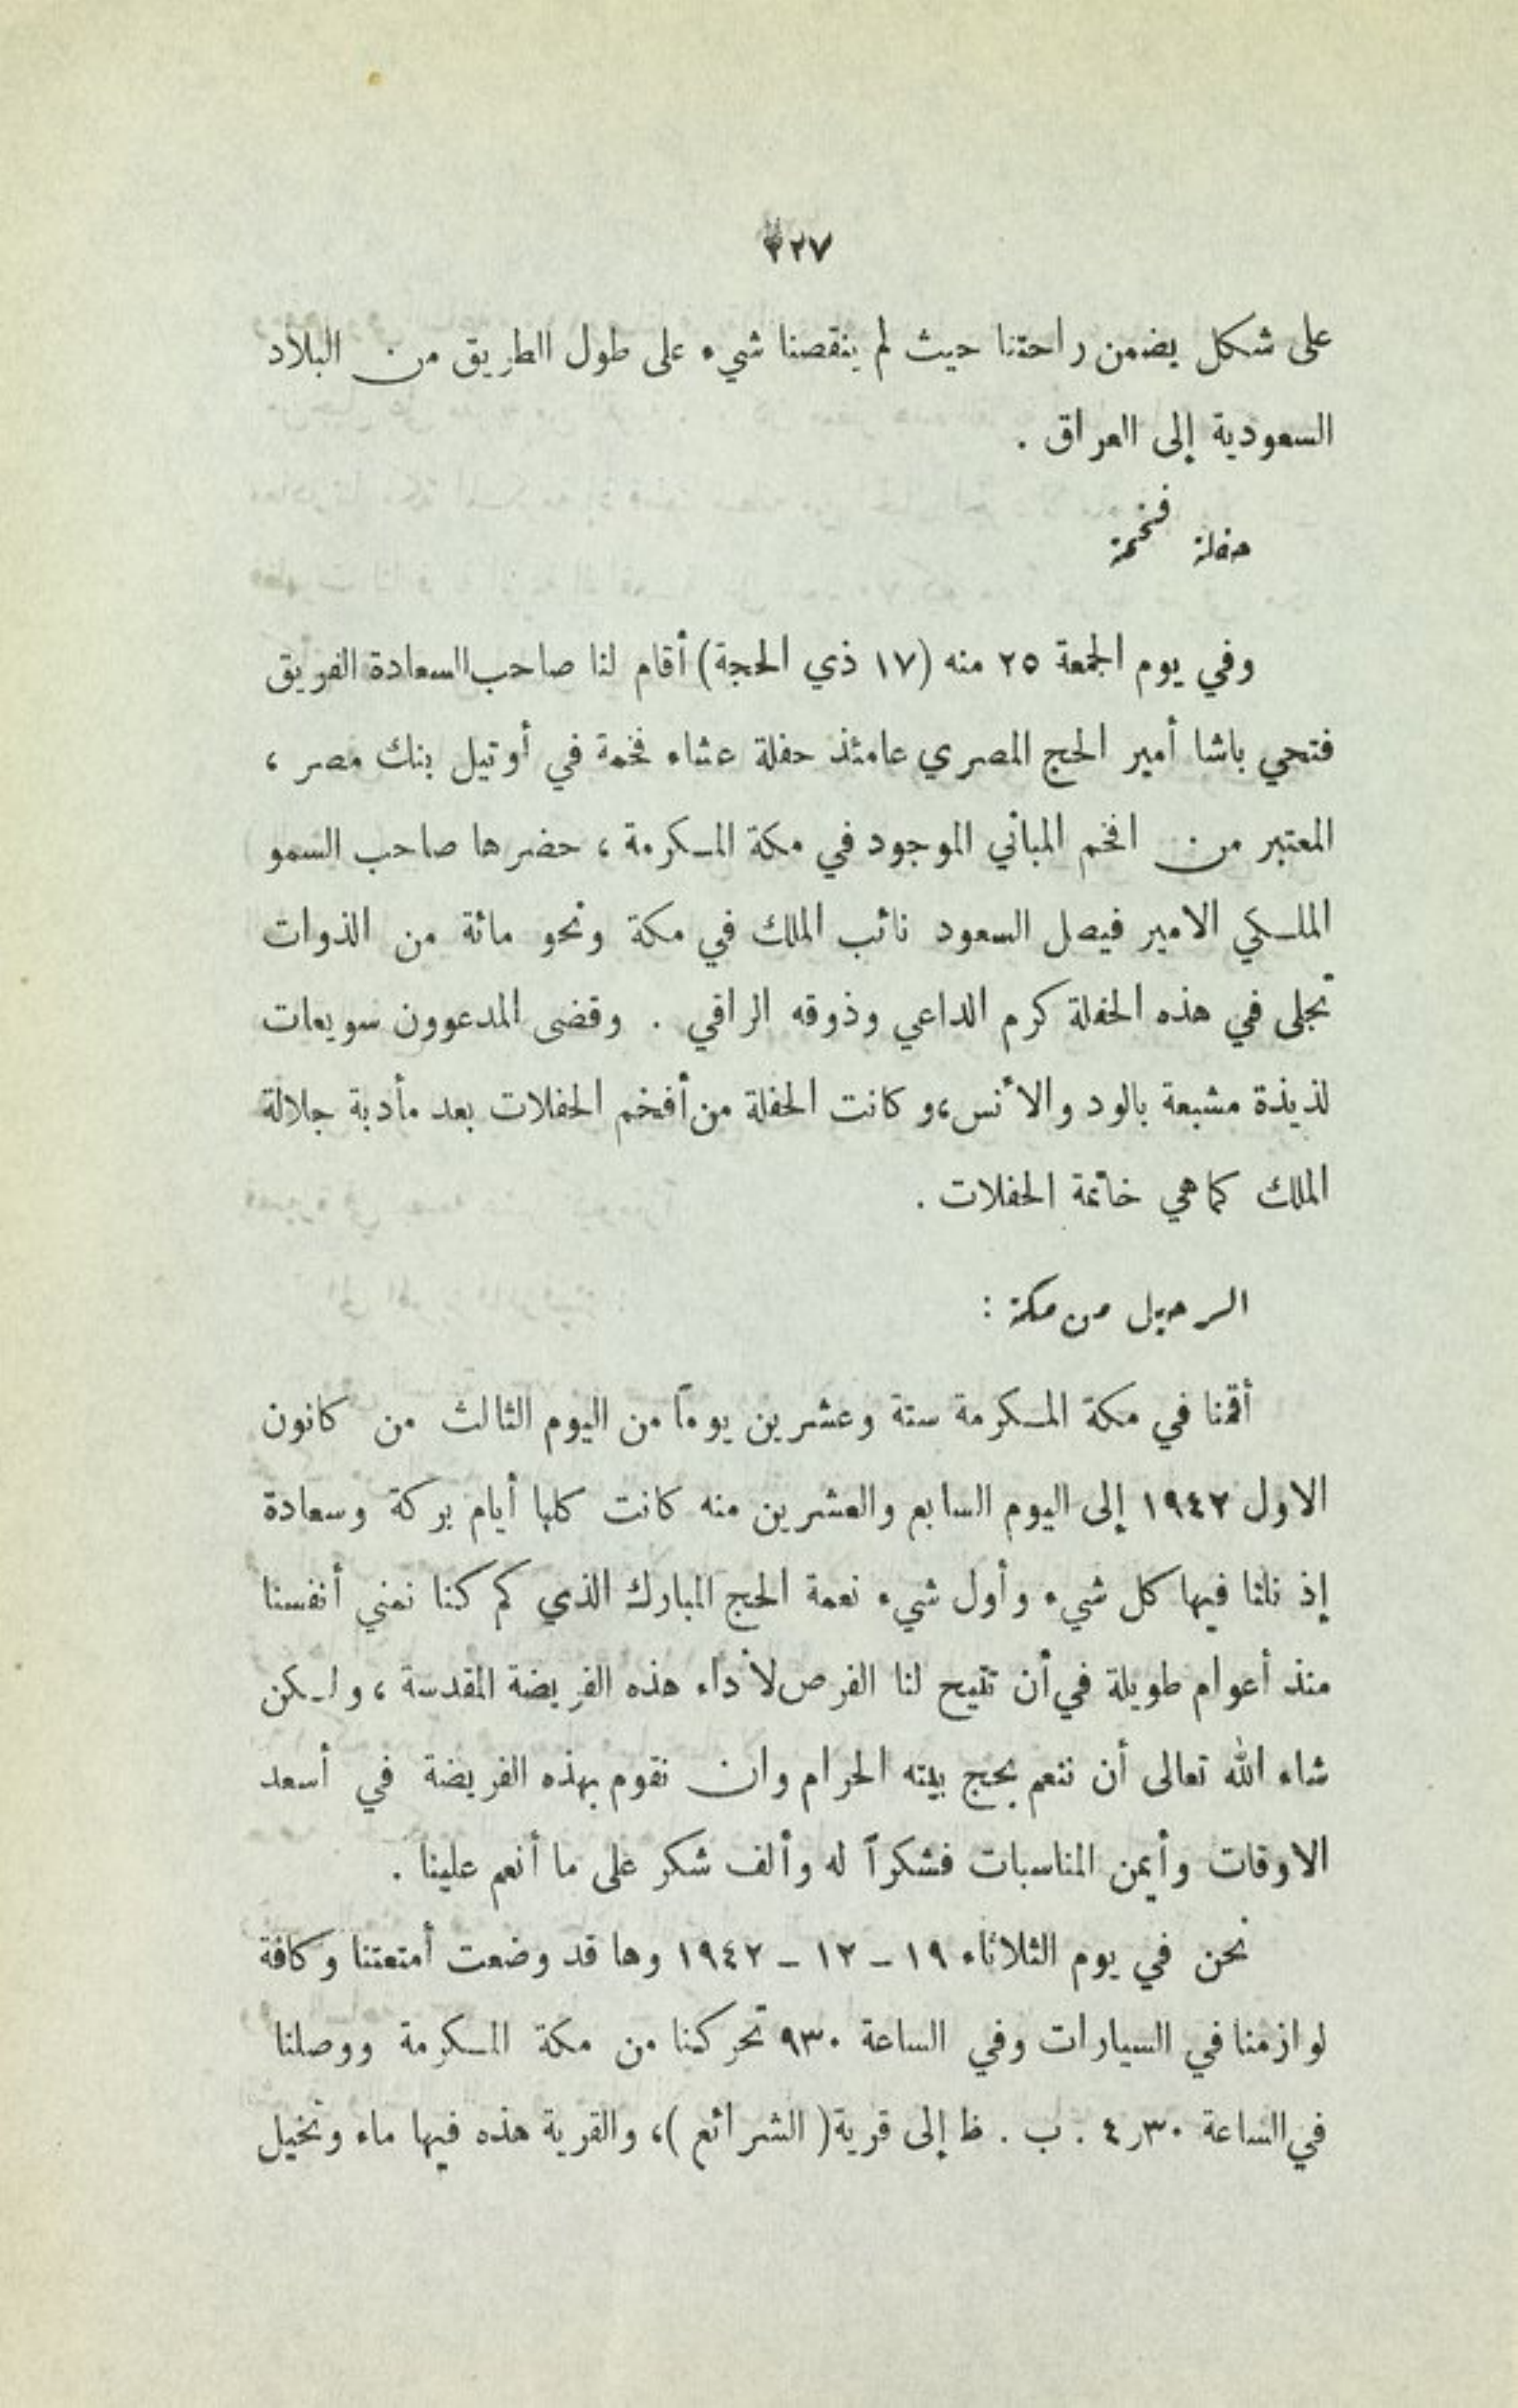 ٢٢٧
على شكل يضمن راحتنا حيث لم ينقصنا شيء على طول الطريق من البلاد
السعودية إلى العراق .
حفلة فخمة
وفي يوم الجمعة ٢٥ منه (١٧ ذي الحجة) أقام لنا صاحب السعادة الفريق
فتحي باشا أمير الحج المصري عامئذ حفلة عشاء فخمة في أوتيل بنك مصر ،
المعتبر من افخم المباني الموجود في مكة المكرمة ، حضرها صاحب السمو
الملكي الامير فيصل السعود نائب الملك في مكة ونحو مائة من الذوات
تجلى في هذه الحفلة كرم الداعي وذوقه الراقي . وقضى المدعوون سويعات
لذيذة مشبعة بالود والأنس،وكانت الحفلة من أفخم الحفلات بعد مأدبة جلالة
الملك كما هي خاتمة الحفلات .
الرحيل من مكة :
أقمنا في مكة المكرمة ستة وعشرين يوماً من اليوم الثالث من كانون
الاول ١٩٤٢ إلى اليوم السابع والعشرين منه كانت كلها أيام بركة وسعادة
إذ نلنا فيها كل شيء وأول شيء نعمة الحج المبارك الذي كم كنا نمني أنفسنا
منذ أعوام طويلة في أن تتيح لنا الفرص لأداء هذه الفريضة المقدسة ، ولكن
شاء الله تعالى أن ننعم بحج بيته الحرام وان نقوم بهذه الفريضة في أسعد
الاوقات وأيمن المناسبات فشكراً له وألف شكر على ما أنعم علينا .
نحن في يوم الثلاثاء ١٩ - ١٢ - ١٩٤٢ وها قد وضعت أمتعتنا وكافة
لوازمنا في السيارات وفي الساعة ٩٣٠ تحركنا من مكة المكرمة ووصلنا
في الساعة ٤٫٣٠ . ب . ظ إلى قرية ( الشرائع )، والقرية هذه فيها ماء ونخيل